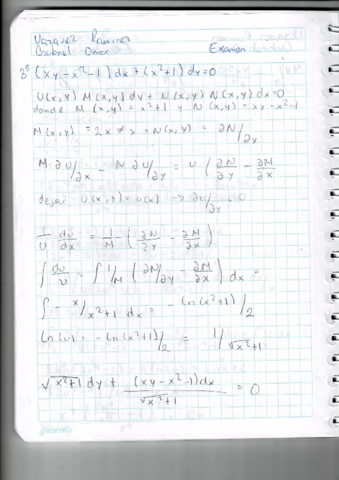 Vazquez Ramirez
Examen
3° (xy - x² - 1) dx + (x² + 1) dy = 0
U(x,y) M(x,y) dy + N(x,y) N(x,y) dx = 0
donde M(x,y) = x² + 1 y N(x,y) = xy - x² - 1
M(x,y) = 2x ≠ x = N(x,y) = ∂N/∂y
M ∂U/∂x - N ∂U/∂y = U (∂N/∂y - ∂M/∂x
dejar U(x,y) = U(x) → ∂U/∂y = 0
1/U dU/dx = 1/M - (∂N/∂y - ∂M/∂x)
∫ dU/U = ∫ 1/M (∂N/∂y - ∂M/∂x) dx =
∫ - x/x²+1 dx = - ln(x²+1)/2
ln(U) = - ln(x²+1)/2 = 1/√x²+1
√x²+1 dy + (xy - x² - 1)dx/√x²+1 = 0